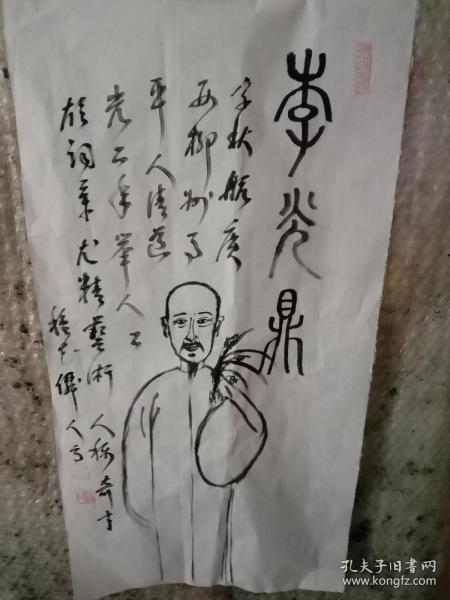 李光鼎
字秋舫广
西柳州马
平人清道
光二年举人工
于词章尤精艺术人称奇才
人
孔夫子旧书网
www.kongfz.com